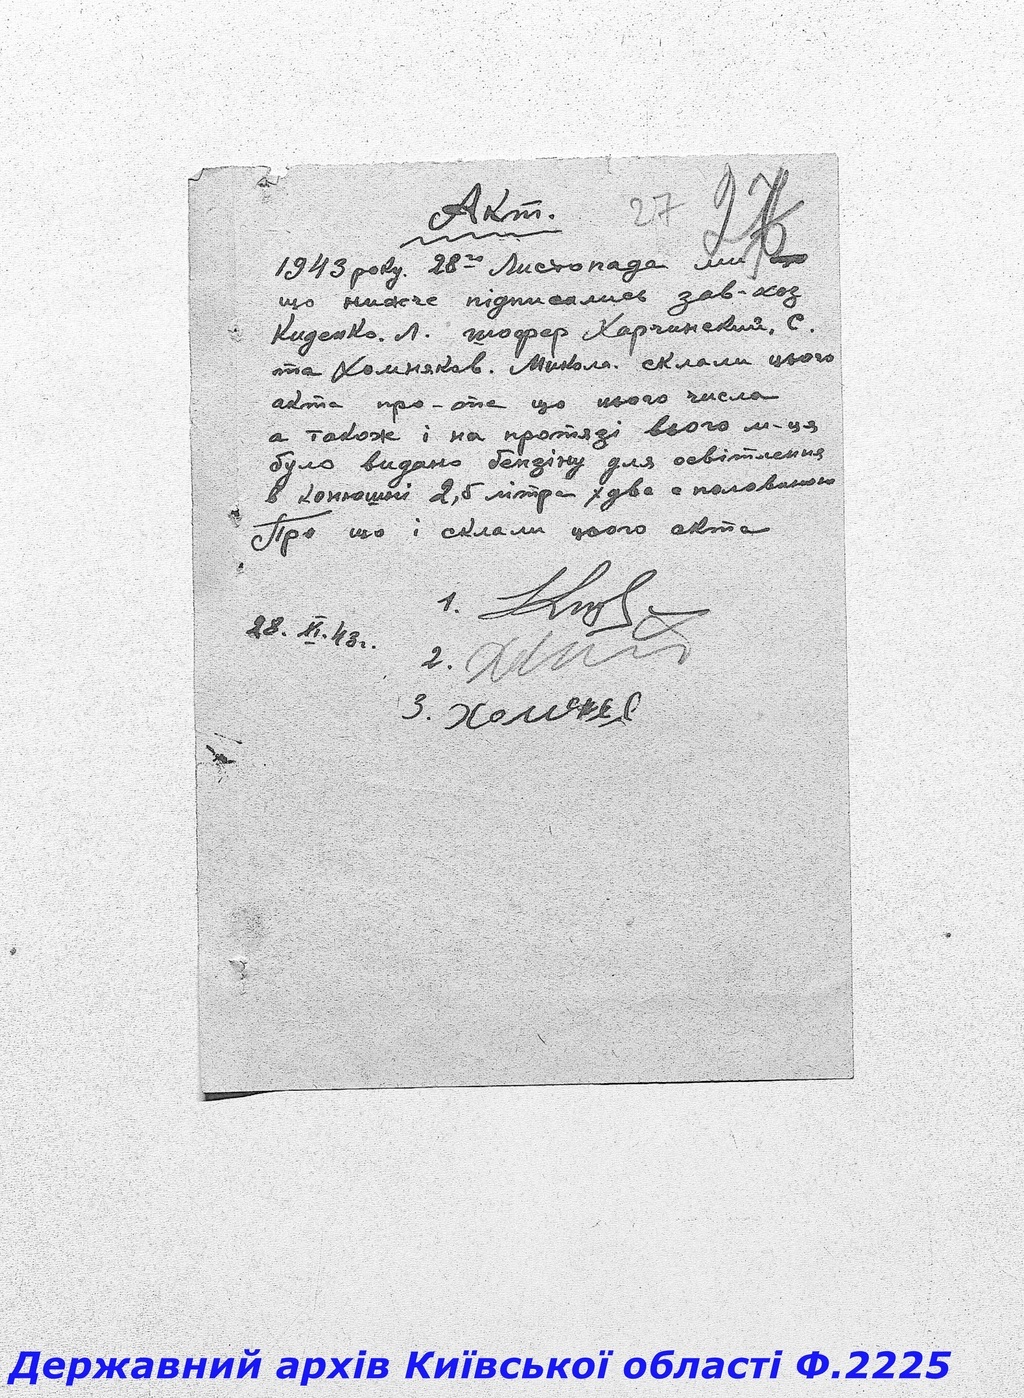 Акт.
27
1943 року. 28го Листопада ми
що нижче підписались зав-хоз
Киденко. Л. шофер Харчинский. С.
та Хомняков. Микола. склали цього
акта про-те що цього числа
а також і на протязі всього м-ця
було видано бензіну для освітлення
в конюшні 2,5 літра
Про що і склали цього акта
1.
28. XI. 43 г.
2.
3.
Державний архів Київської області Ф.2225